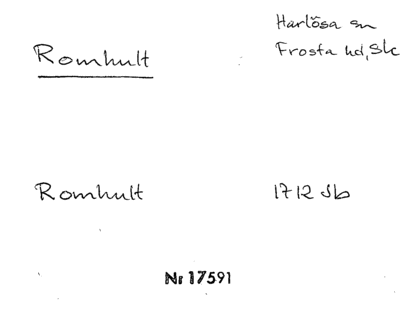 Harlösa sn
Romhult
Frosta hd, Sk
Romhult 1712 Jb
Nr 17591